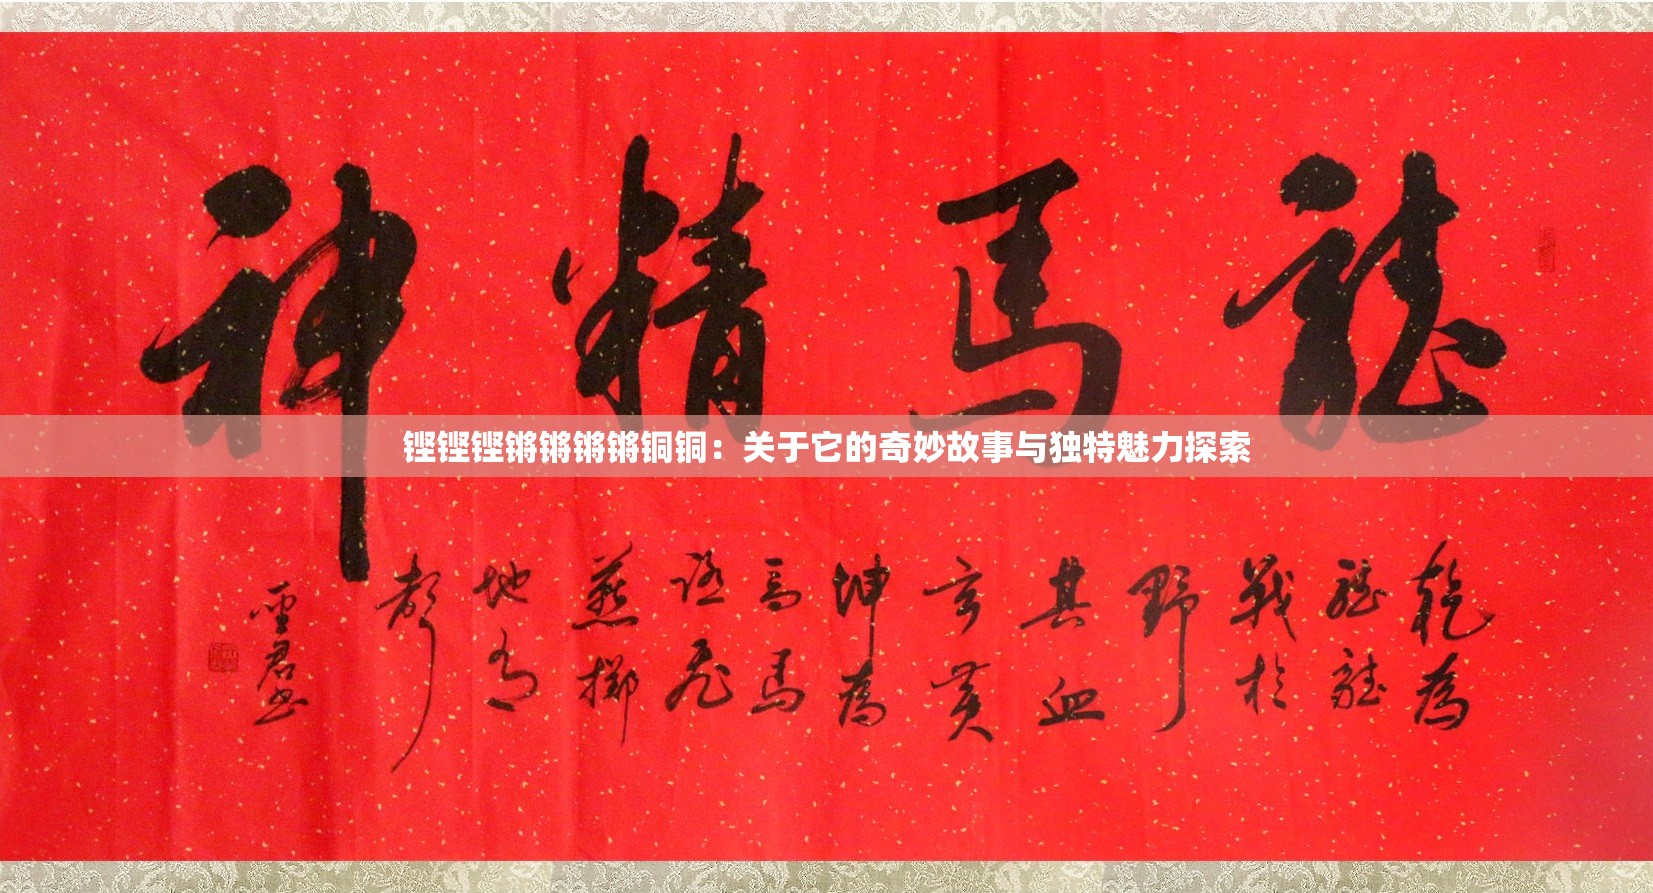 龍马精神
铿铿铿锵锵锵锵铜铜：关于它的奇妙故事与独特魅力探索
乾為
龍龍
戰於
野
其血
玄黃
坤為
馬马
踏飛
燕擲
地有
聲
君书